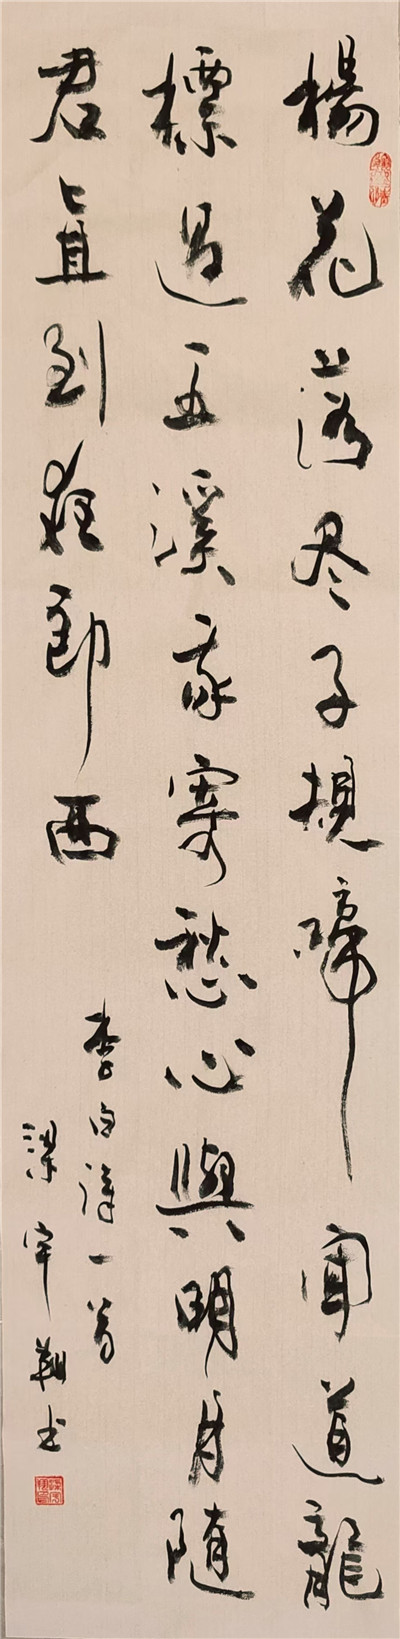 楊花落尽子規啼聞道龍
標過五溪我寄愁心與明月隨
君直到夜郎西
李白詩一首
梁宇翔书